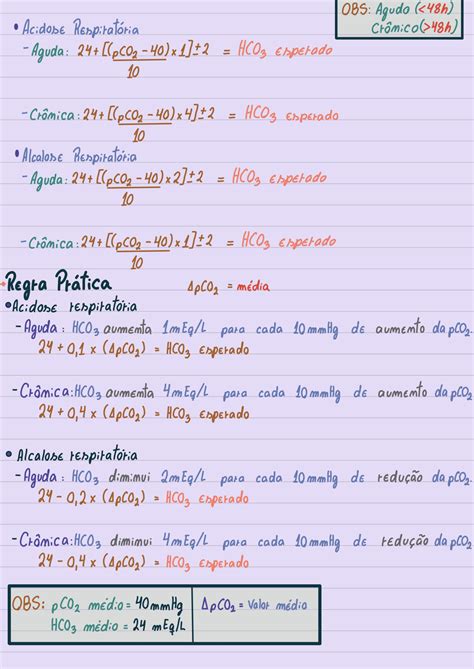 OBS: Agudo (<48h)
Crônico (>48h)
• Acidose Respiratória
- Aguda: 24+[(pCO2-40)x1]±2 = HCO3 esperado
10
- Crônica: 24+[(pCO2-40)x4]±2 = HCO3 esperado
10
• Alcalose Respiratória
- Aguda: 24+[(pCO2-40)x2]±2 = HCO3 esperado
10
- Crônica: 24+[(pCO2-40)x1]±2 = HCO3 esperado
10
Regra Prática ΔpCO2 = média
• Acidose respiratória
- Aguda: HCO3 aumenta 1mEq/L para cada 10mmHg de aumento da pCO2.
24 + 0,1 x (ΔpCO2) = HCO3 esperado
- Crônica: HCO3 aumenta 4mEq/L para cada 10mmHg de aumento da pCO2
24 + 0,4 x (ΔpCO2) = HCO3 esperado
• Alcalose respiratória
- Aguda: HCO3 diminui 2mEq/L para cada 10mmHg de redução da pCO2.
24 - 0,2 x (ΔpCO2) = HCO3 esperado
- Crônica: HCO3 diminui 4mEq/L para cada 10mmHg de redução da pCO2
24 - 0,4 x (ΔpCO2) = HCO3 esperado
OBS: pCO2 médio = 40mmHg ΔpCO2 = Valor médio
HCO3 médio = 24 mEq/L